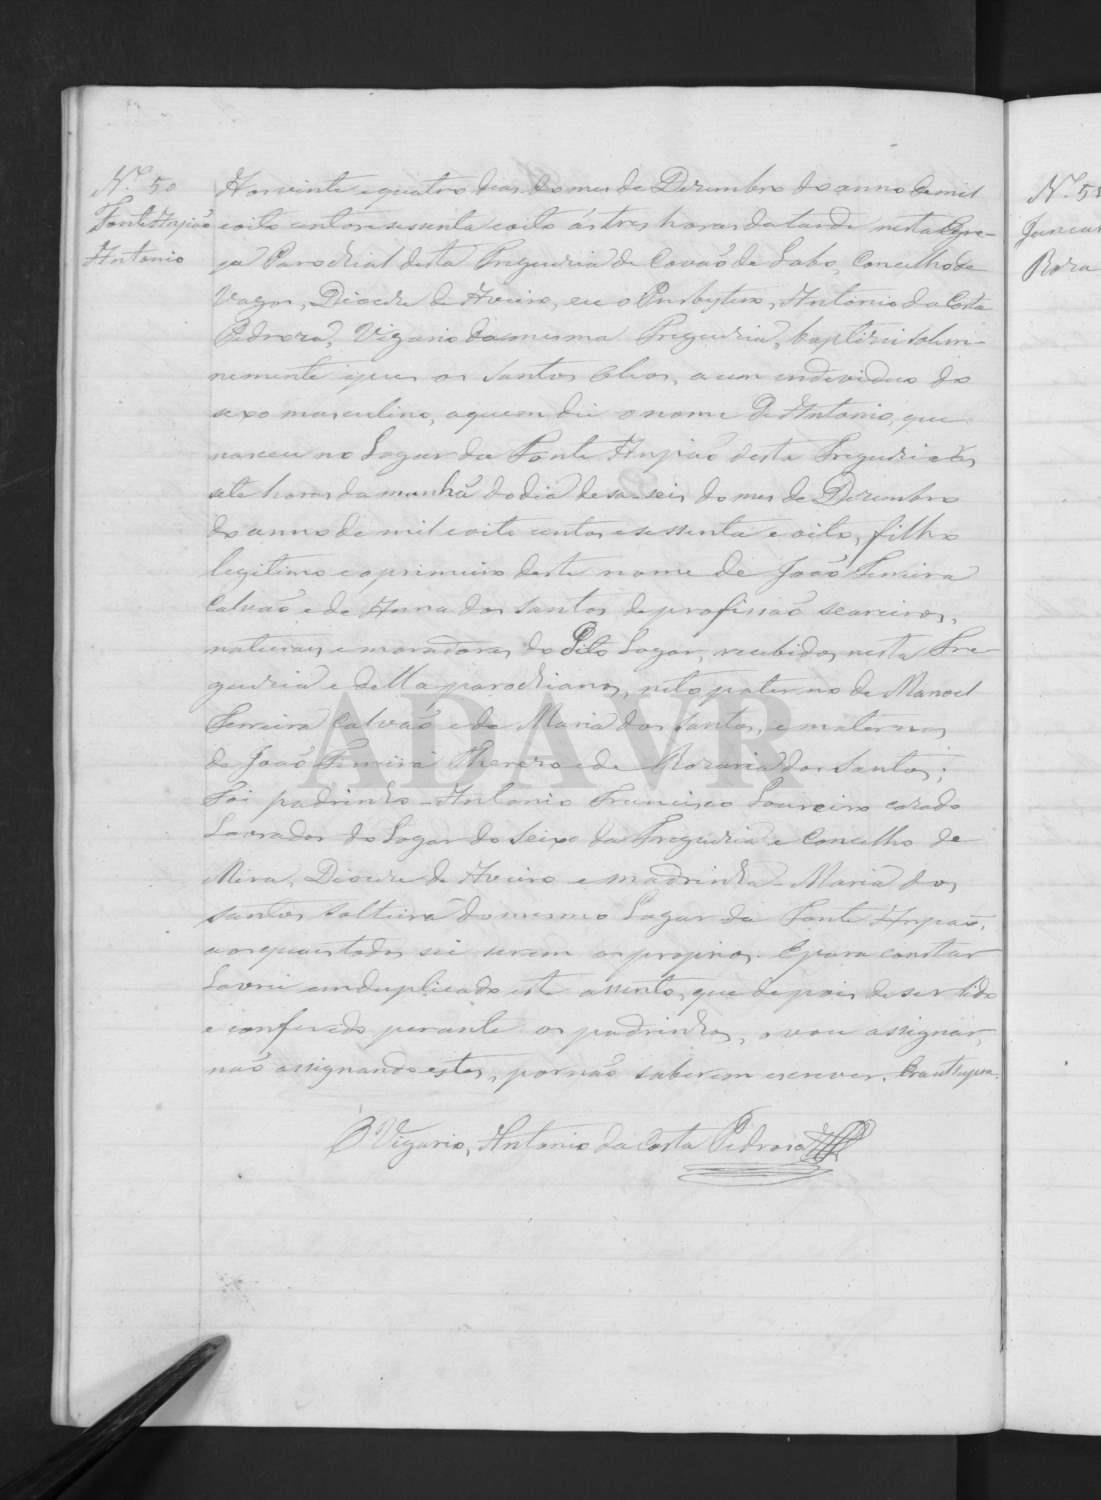 N.º 50
Fonte Anjião
Antonio
Aos vinte e quatro dias do mes de Dezembro do anno de mil
e oito centos e sessenta e oito ás tres horas da tarde nesta Egre-
ja Parochial desta Freguezia de Covão do Lobo, Concelho de
Vagos, Diocese de Aveiro, eu o Presbytero, Antonio da Costa
Pedroza, Vigario da mesma Freguezia, baptizei solem-
nemente e puz os Santos Oleos, a um individuo do
sexo masculino, a quem dei o nome de Antonio, que
nasceu no Lugar da Fonte Anjião desta Freguezia ás
sete horas da manhã do dia desaseis do mes de Dezembro
do anno de mil e oito centos e sessenta e oito, filho
legitimo e o primeiro deste nome de João Ferreira
Calvão e de Anna dos Santos de profissão seareiros,
naturaes e moradores do Dito Lugar, recebidos nesta Fre-
guezia e della parochianos, neto paterno de Manoel
Ferreira Calvão e de Maria dos Santos, e materno
de João Ferreira e de Rozaria dos Santos;
Foi padrinho Antonio Francisco Loureiro cazado
Lavrador do Logar do Seixo da Freguezia e Concelho de
Mira, Diocese de Aveiro e madrinha Maria dos
Santos solteira do mesmo Lugar da Fonte Anjião,
os quaes todos sei serem os proprios. E para constar
Lavrei em duplicado este assento, que depois de ser lido
e conferido perante os padrinhos, o vou assignar,
não assignando estes, por não saberem escrever. Era ut supra.
O Vigario, Antonio da Costa Pedroza
ADAVR
N.º 51
Roza